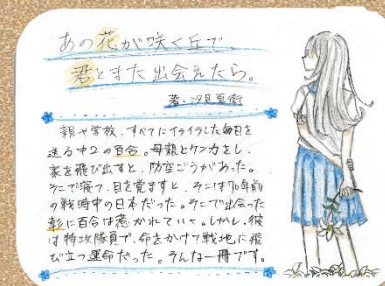 あの花が咲く丘で、
君とまた出会えたら。
著:汐見夏衛
親や学校、すべてにイライラした毎日を
送る中2の百合。母親とケンカをし、
家を飛び出すと、防空ごうがあった。
そこで寝て、目を覚ますと、そこは70年前
の戦時中の日本だった。そこで出会った
彰に百合は惹かれていく。しかし、彼
は特攻隊員で、命をかけて戦地に飛
び立つ運命だった。そんな一冊です。